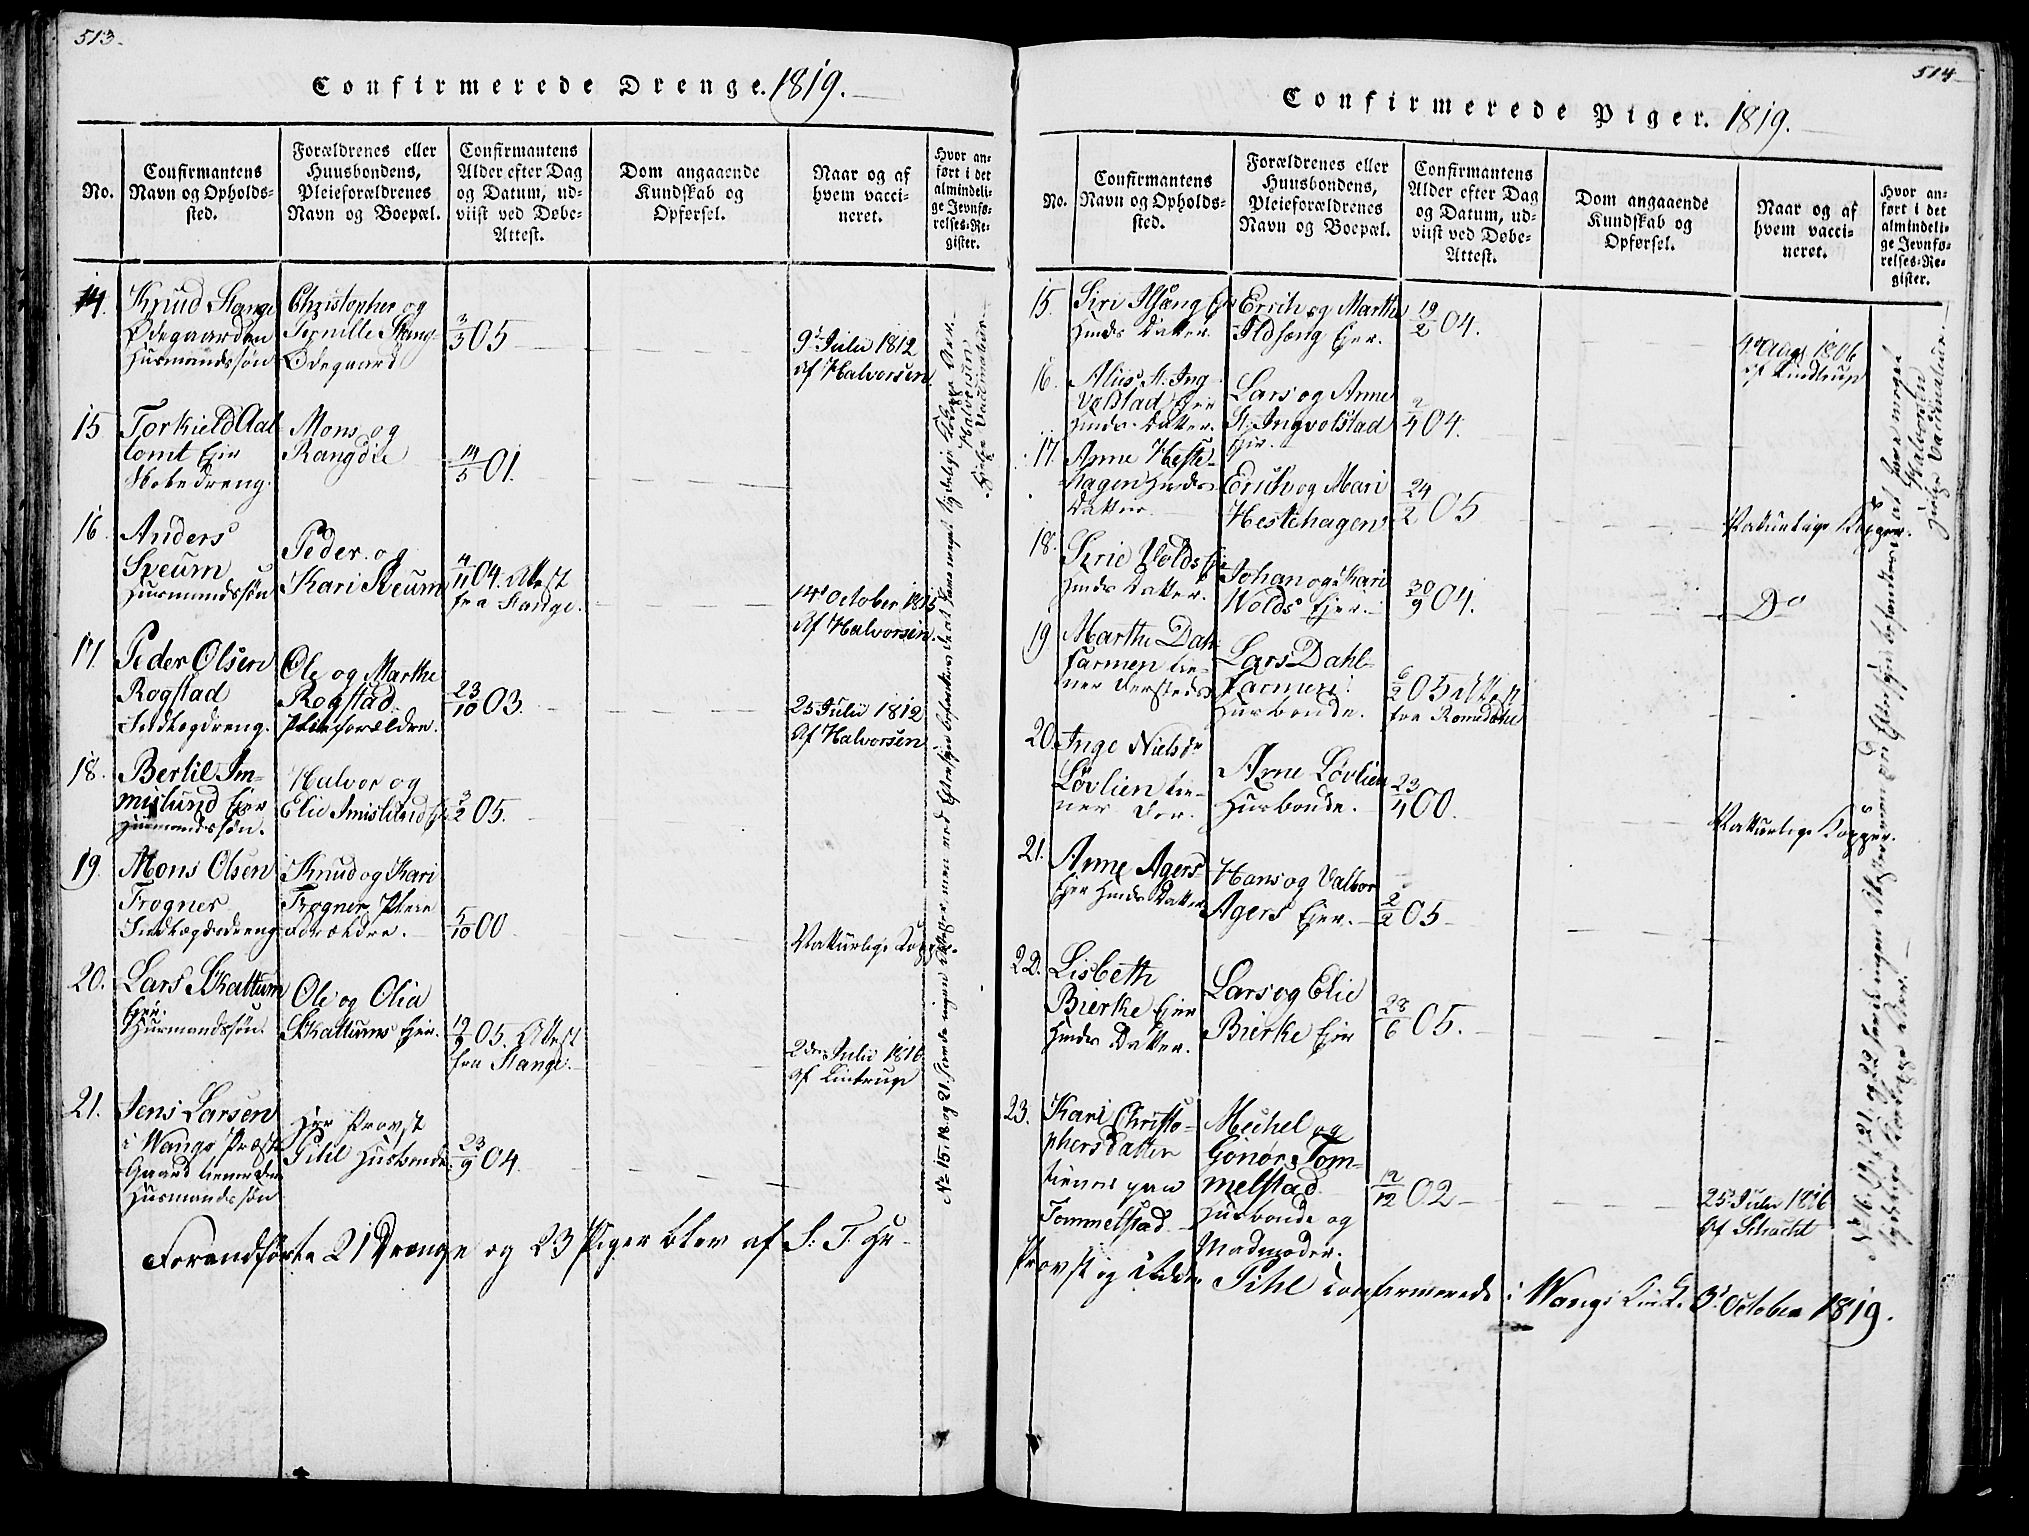 513.
Confirmerede Drenge. 1819.
No.
Confirmantens
Navn og Opholds-
sted.
Forældrenes eller
Huusbondens,
Pleieforældrenes
Navn og Boepæl.
Confirmantens
Alder efter Dag
og Datum, ud-
viist ved Døbe-
Attest.
Dom angaaende
Kundskab og
Opførsel.
Naar og af
hvem vacci-
neret.
Hvor an-
ført i det
almindeli-
ge Jevnfø-
relses-Re-
gister.
14.
Knud Stange
Ødegaarden
Husmandssøn
Christopher og
Pernille Stang-
Ødegaard
3/3 05
9d Julii 1812
af Halvorsen
15
Torkield Aal-
tomt Eier
Mons og
Rangdie
14/5 01.
16.
Anders
Steum
Husmandssøn
Peder og
Kari Steum
4/11 04. Attest
fra Stange.
14d October 1815
Af Halvorsen.
17.
Peder Olsen
Rogstad
Indlægdreng.
Ole og Marthe
Rogstad.
Pleieforældre.
23/10 03.
25 Julii 1812
Af Halvorsen
18.
Bertil Im-
mislund Eier
Husmandssøn.
Halvor og
Elie Imislund
3/2 05.
19.
Mons Olsen
Frogner
Indlægdsdreng
Knud og Kari
Frogner Pleie
Forældre.
5/10 00
Naturlige Kopper.
20.
Lars Skattum
Eier.
Husmandssøn.
Ole og Olia
Skattums Eier.
05. Attest
fra Stange.
2den Julii 1816
af Lintrup
21.
Jens Larsen
i Wangs Præste
Gaard tiener der
Husmandssøn
Her Provst
Pihl Husbonde.
23/9 04.
Foranførte 21 Drenge og 23 Piger blev af S. T. Hr
514
Confirmerede Piger. 1819.
No.
Confirmantens
Navn og Opholds-
sted.
Forældrenes eller
Huusbondens,
Pleieforældrenes
Navn og Boepæl.
Confirmantens
Alder efter Dag
og Datum, ud-
viist ved Døbe-
Attest.
Dom angaaende
Kundskab og
Opførsel.
Naar og af
hvem vacci-
neret.
Hvor an-
ført i det
almindeli-
ge Jevnfø-
relses-Re-
gister.
15.
Siri Ilsæng Eier
Hmds Datter.
Erich og Marthe
Ildsæng Eier.
19/2 04.
4d Aug. 1806
af Lindtrup
16.
St. Ing
volstad Eier
Hmds. Datter.
Lars og Anne
St. Ingvolstad
Eier.
2/4 04.
17.
Anne Heste-
hagen Hmds
Datter.
Erich og Mari
Hestehagen
24/2 05
Naturlige Kopper.
18.
Sirie Volds Eie
Hmds Datter.
Johan og Kari
Wolds Eier.
30/9 04.
Do
19
Marthe Dahl
farmen tie-
ner dersteds
Lars Dahl-
farmen
Husbonde.
6/2 05 Attest
fra Romedahl
20.
Inge Nielsdr
Løvlien tie-
ner der.
Arne Løvlien
Husbonde.
23/4 00.
Naturlige Kopper.
21.
Anne Agers
Eier Hmds Datter
Hans og Valbor
Agers Eier.
2/2 05
22.
Lisbeth
Bierke Eier
Hmds Datter.
Lars og Elie
Bierke Eier
23/6 05.
23.
Kari Christo-
phersdatter
tiener paa
Tommelstad.
Michel og
Gonor Tom-
melstad
Husbonde og
Madmoder.
12/12 02
25d Julii 1816
Af Schracht
Provst og Ridder Pihl confirmerede i Wangs Kirke 3d October 1819.